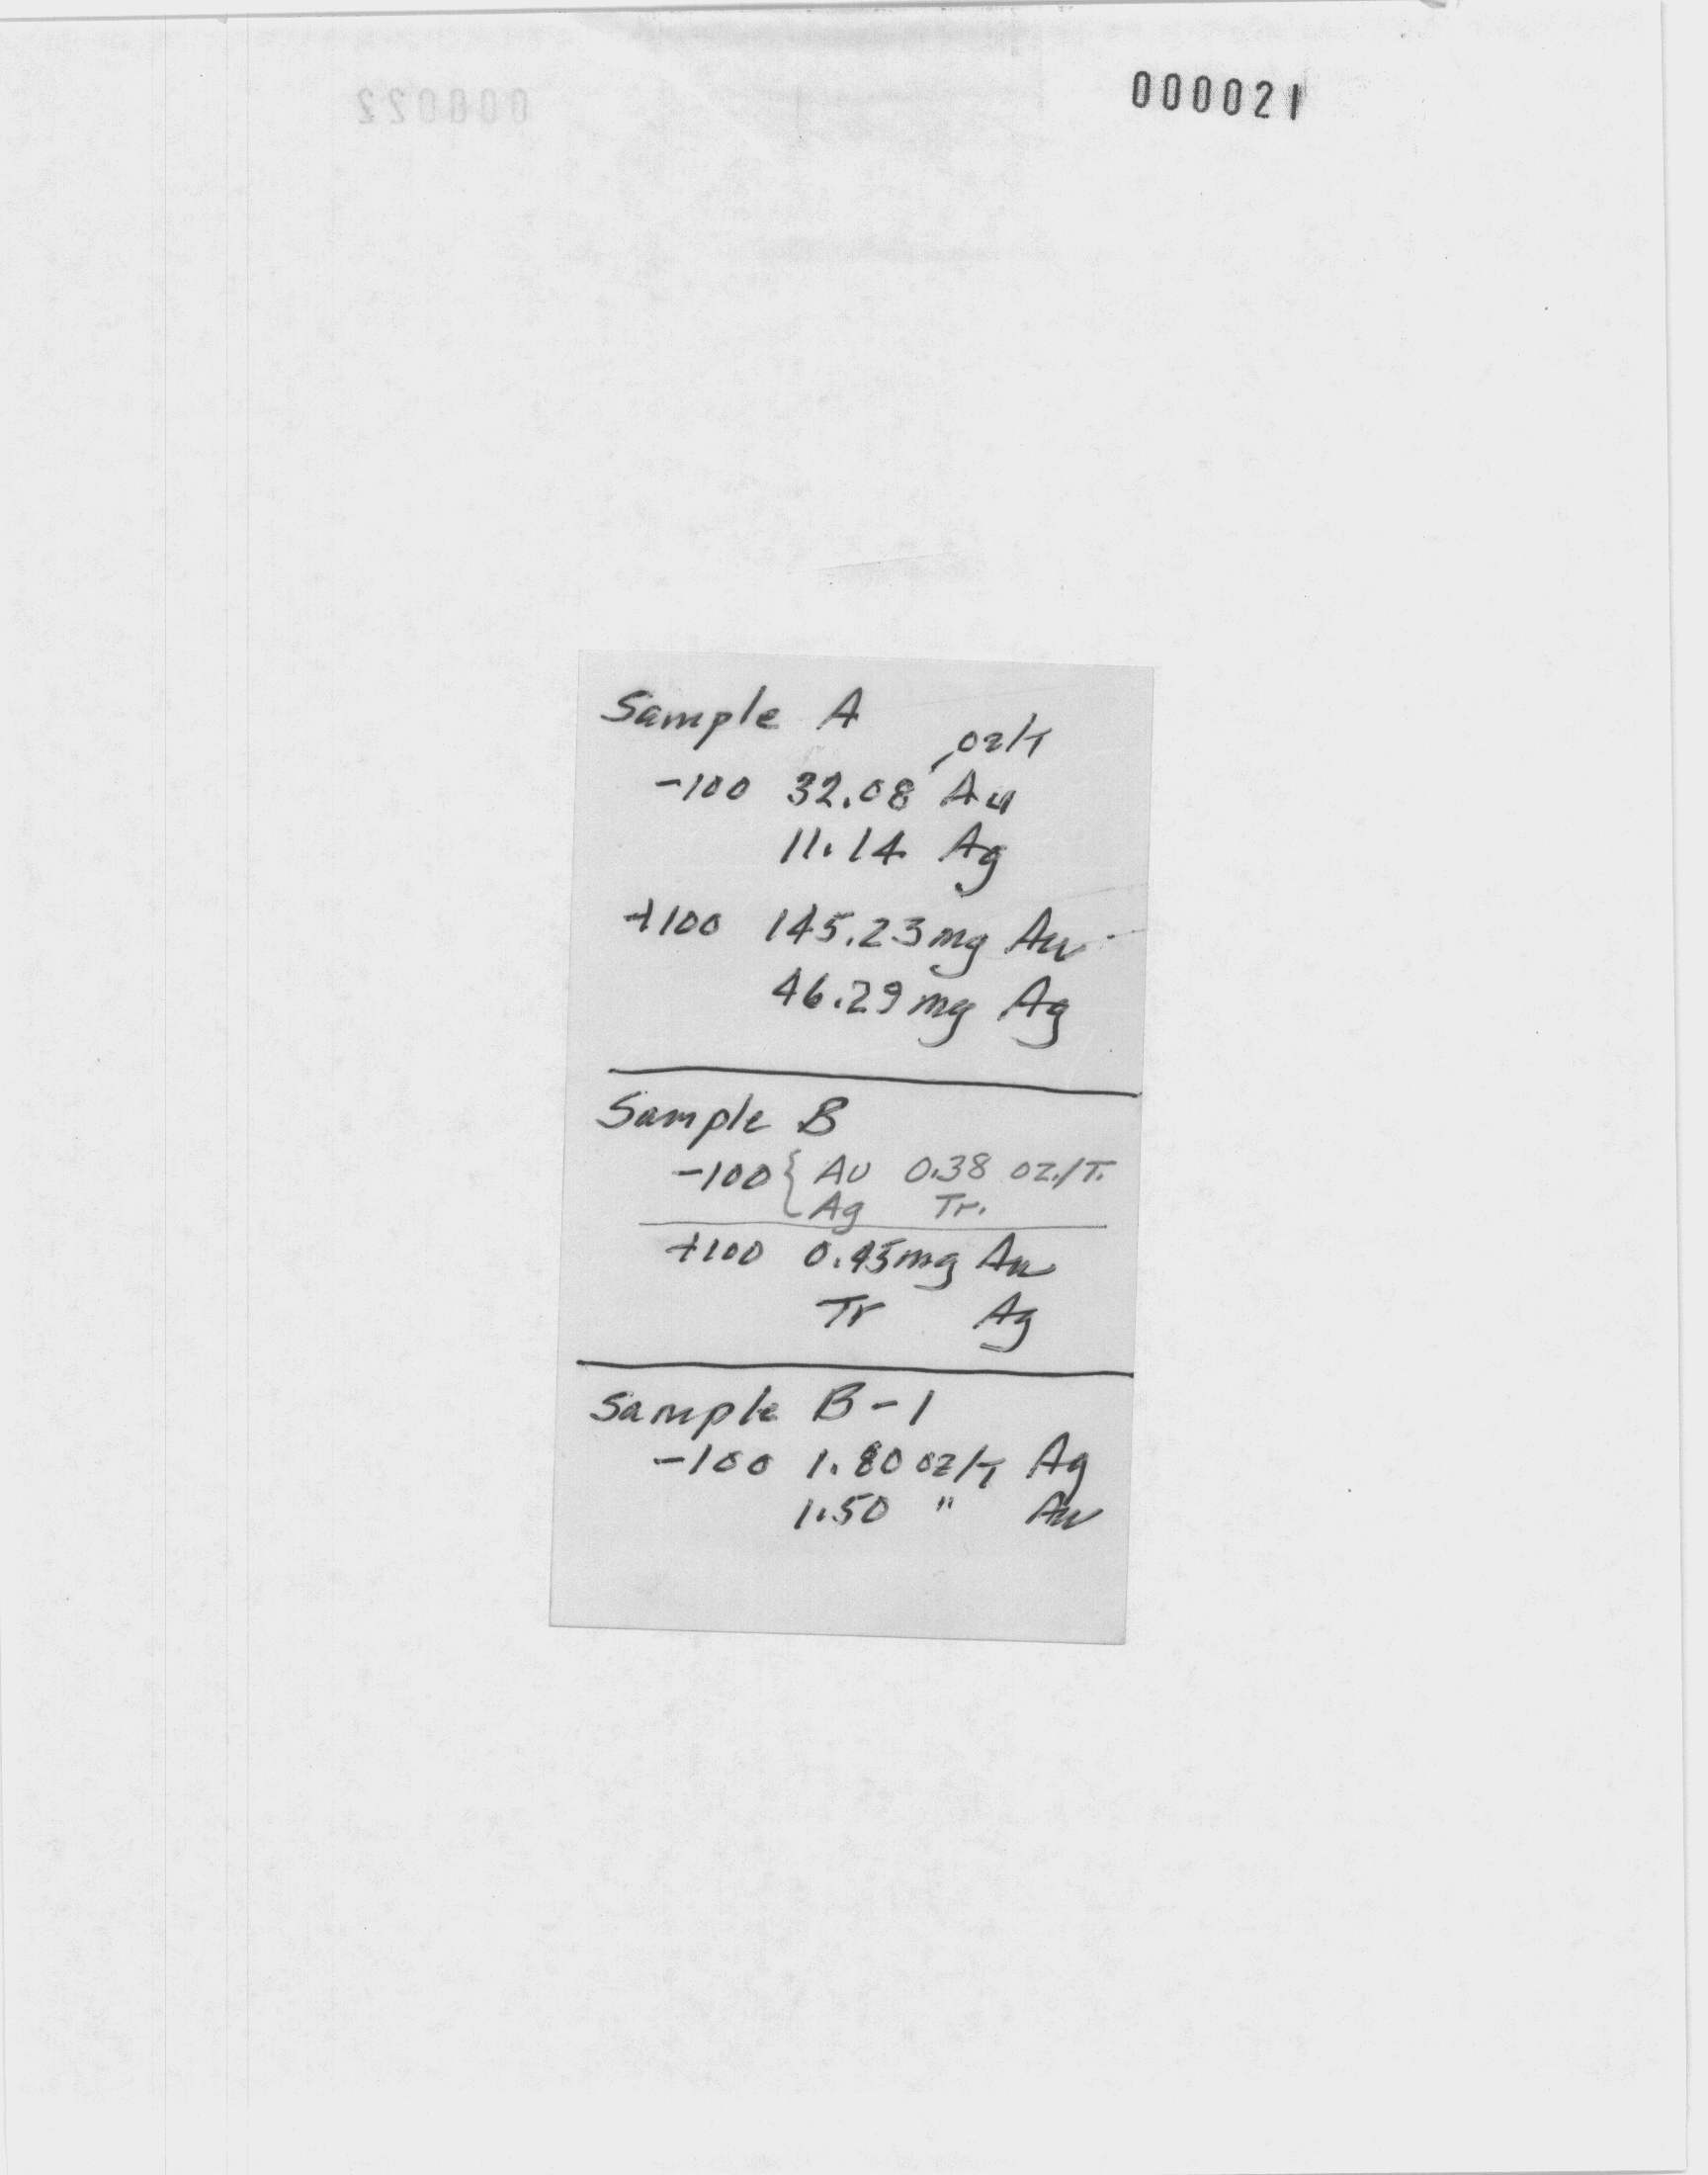 000021
000022
Sample A
oz/T
-100 32.08 Au
11.14 Ag
+100 145.23 mg Au
46.29 mg Ag
Sample B
-100 { Au 0.38 oz./T.
Ag Tr.
+100 0.45 mg Au
Tr Ag
Sample B-1
-100 1.80 oz/T Ag
1.50 " Au